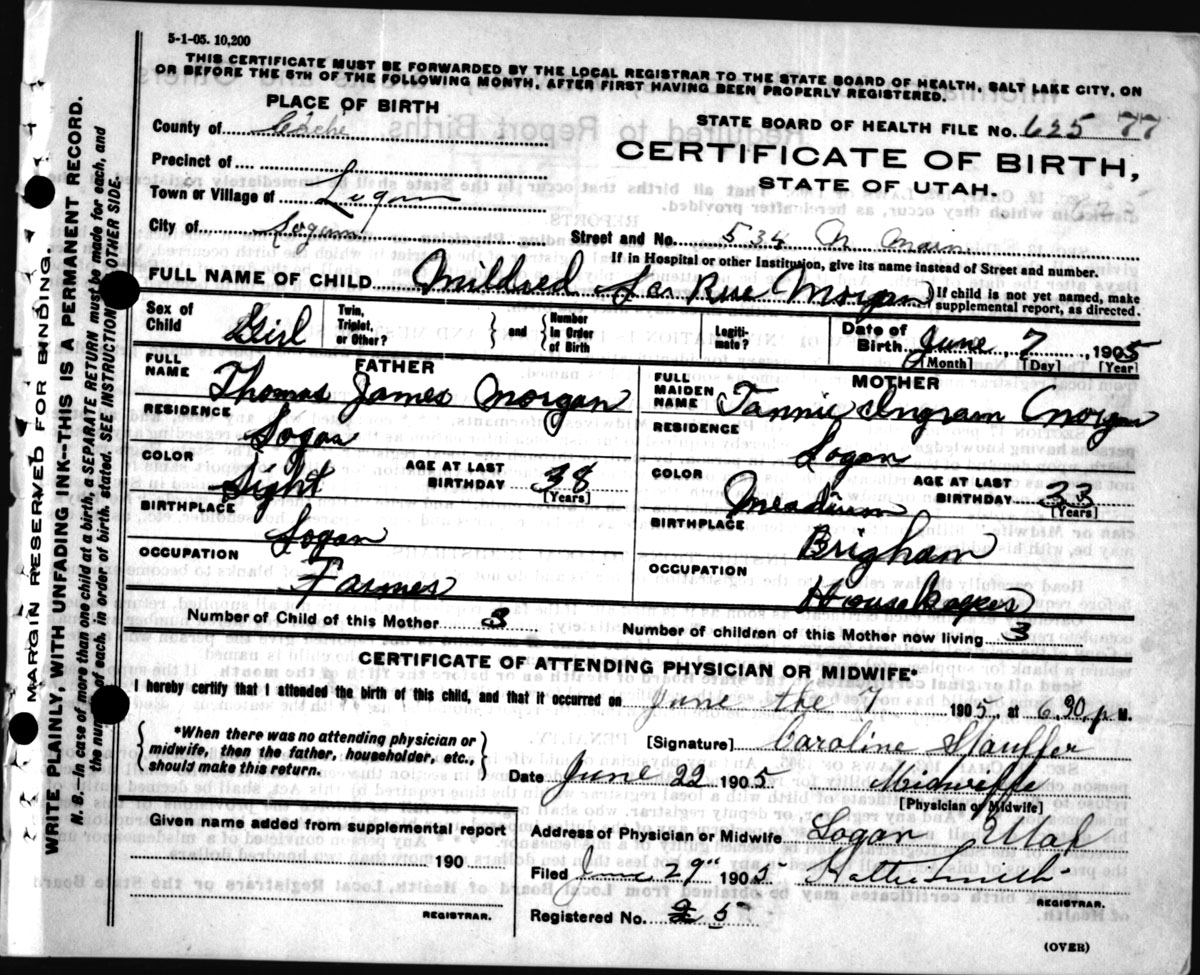 5-1-05. 10,200
THIS CERTIFICATE MUST BE FORWARDED BY THE LOCAL REGISTRAR TO THE STATE BOARD OF HEALTH, SALT LAKE CITY, ON
OR BEFORE THE 5TH OF THE FOLLOWING MONTH, AFTER FIRST HAVING BEEN PROPERLY REGISTERED.
PLACE OF BIRTH
STATE BOARD OF HEALTH FILE No. 625 77
County of Cache
CERTIFICATE OF BIRTH,
STATE OF UTAH.
Precinct of
Town or Village of Logan
City of Logan
Street and No. 534 N Main
If in Hospital or other Institution, give its name instead of Street and number.
FULL NAME OF CHILD Mildred La Rue Morgan } If child is not yet named, make supplemental report, as directed.
Sex of Child Girl Twin, Triplet, or Other? } and { Number in Order of Birth Legiti- mate? Date of Birth June 7, 1905
[Month] [Day] [Year]
FATHER
FULL NAME Thomas James Morgan
RESIDENCE
Logan
COLOR Light AGE AT LAST BIRTHDAY 38
[Years]
BIRTHPLACE
Logan
OCCUPATION
Farmer
MOTHER
FULL MAIDEN NAME Ingram Morgan
RESIDENCE
Logan
COLOR Meadium AGE AT LAST BIRTHDAY 33
[Years]
BIRTHPLACE
Brigham
OCCUPATION
Number of Child of this Mother 3 Number of children of this Mother now living 3
CERTIFICATE OF ATTENDING PHYSICIAN OR MIDWIFE*
I hereby certify that I attended the birth of this child, and that it occurred on June the 7 1905, at 6.30 p M.
{ *When there was no attending physician or midwife, then the father, householder, etc., should make this return. }
[Signature] Caroline Stauffer
Date June 22 1905 Midwiffe
[Physician or Midwife]
Given name added from supplemental report
190
REGISTRAR.
Address of Physician or Midwife Logan Utah
Filed June 29" 1905 Smith
REGISTRAR.
Registered No. 5
(OVER)
MARGIN RESERVED FOR BINDING.
WRITE PLAINLY, WITH UNFADING INK--THIS IS A PERMANENT RECORD.
N. B.—In case of more than one child at a birth, a SEPARATE RETURN must be made for each, and
the number of each, in order of birth, stated. SEE INSTRUCTIONS OTHER SIDE.